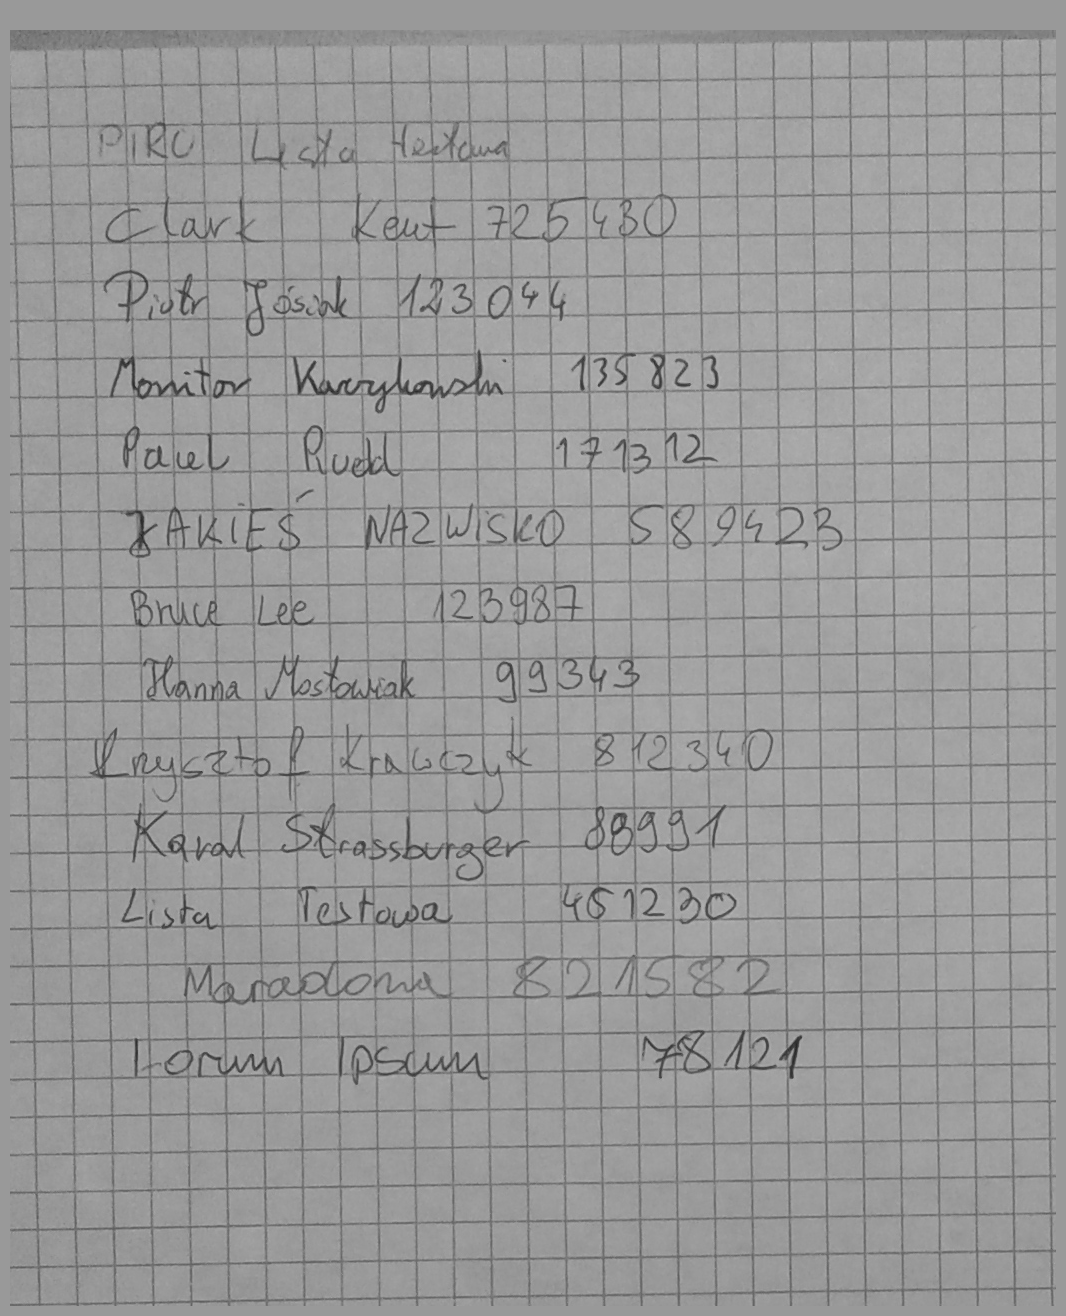 PIRO Lista Testowa
Clark Kent 725430
Piotr Jósiak 123044
Monitor Kawykowski 135823
Paul Rudd 171312
JAKIEŚ NAZWISKO 589423
Bruce Lee 123987
Hanna Mostowiak 99343
Krysztof Krawczyk 812340
Karol Strassburger 88991
Lista Testowa 451230
Maradona 821582
Lorum Ipsum 78121